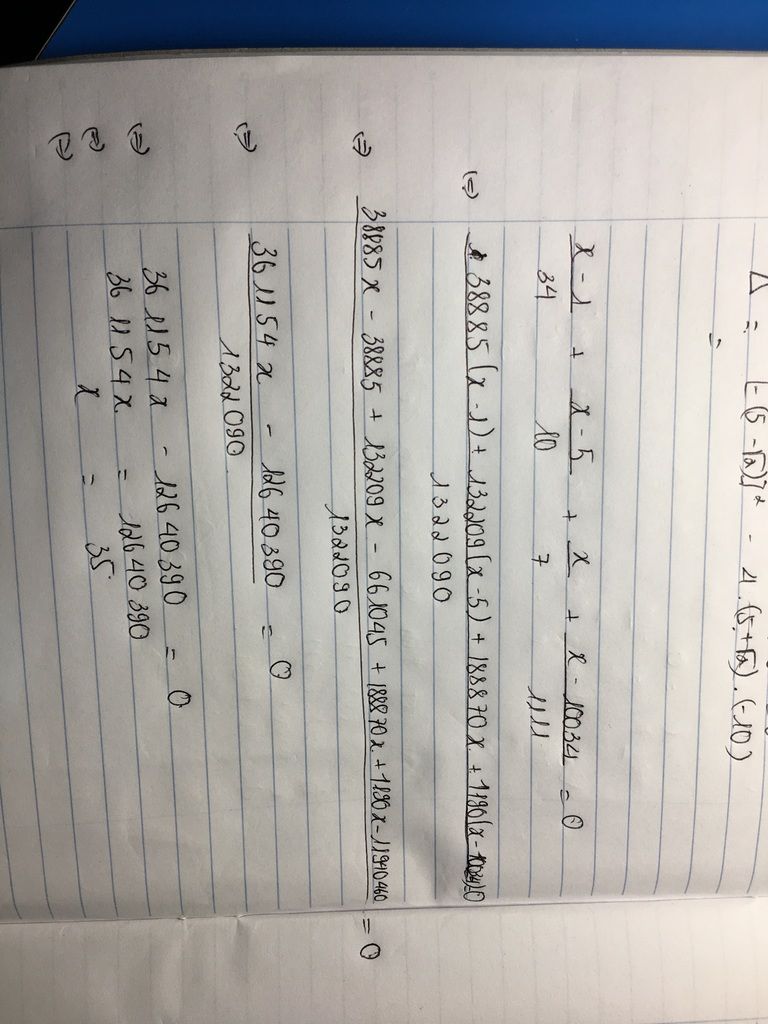 Δ = [-(5 - √2)]² - 4.(5+√2).(-10)
=
x - 1 / 34 + x - 5 / 10 + x / 7 + x - 10034 / 1111 = 0
(=) 38885(x - 1) + 132209(x - 5) + 188870x + 1190(x - 10034) / 1322090
(=) 38885x - 38885 + 132209x - 661045 + 188870x + 1190x - 11940460 / 1322090 = 0
(=) 361154x - 12640390 / 1322090 = 0
(=) 361154x - 12640390 = 0
(=) 361154x = 12640390
(=) x = 35